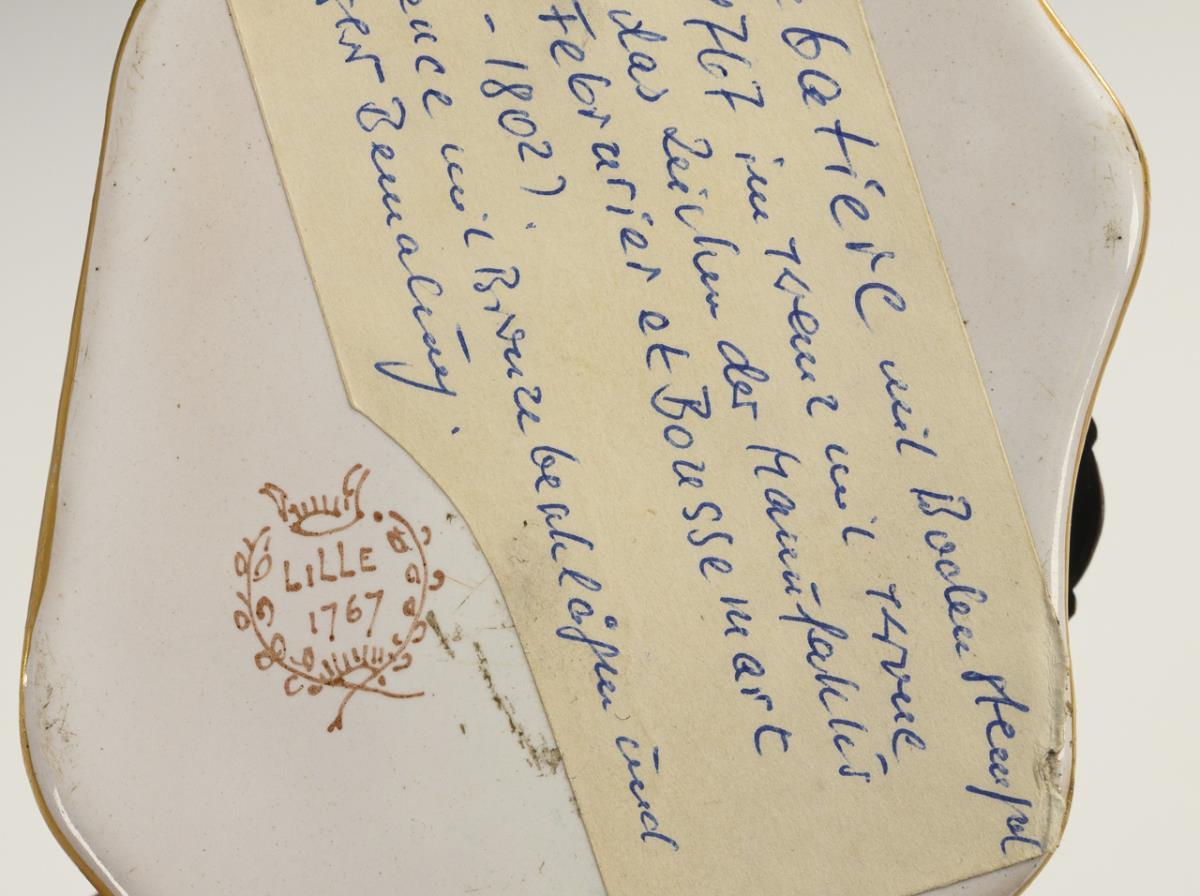 batiert mit Bodenstempel
1767 im Kranz mit Krone
das Zeichen der Manufaktur
Febrarier et Boussemart
- 1802).
ence mit Bronzebeschlägen und
ger Bemalung.
LILLE
1767